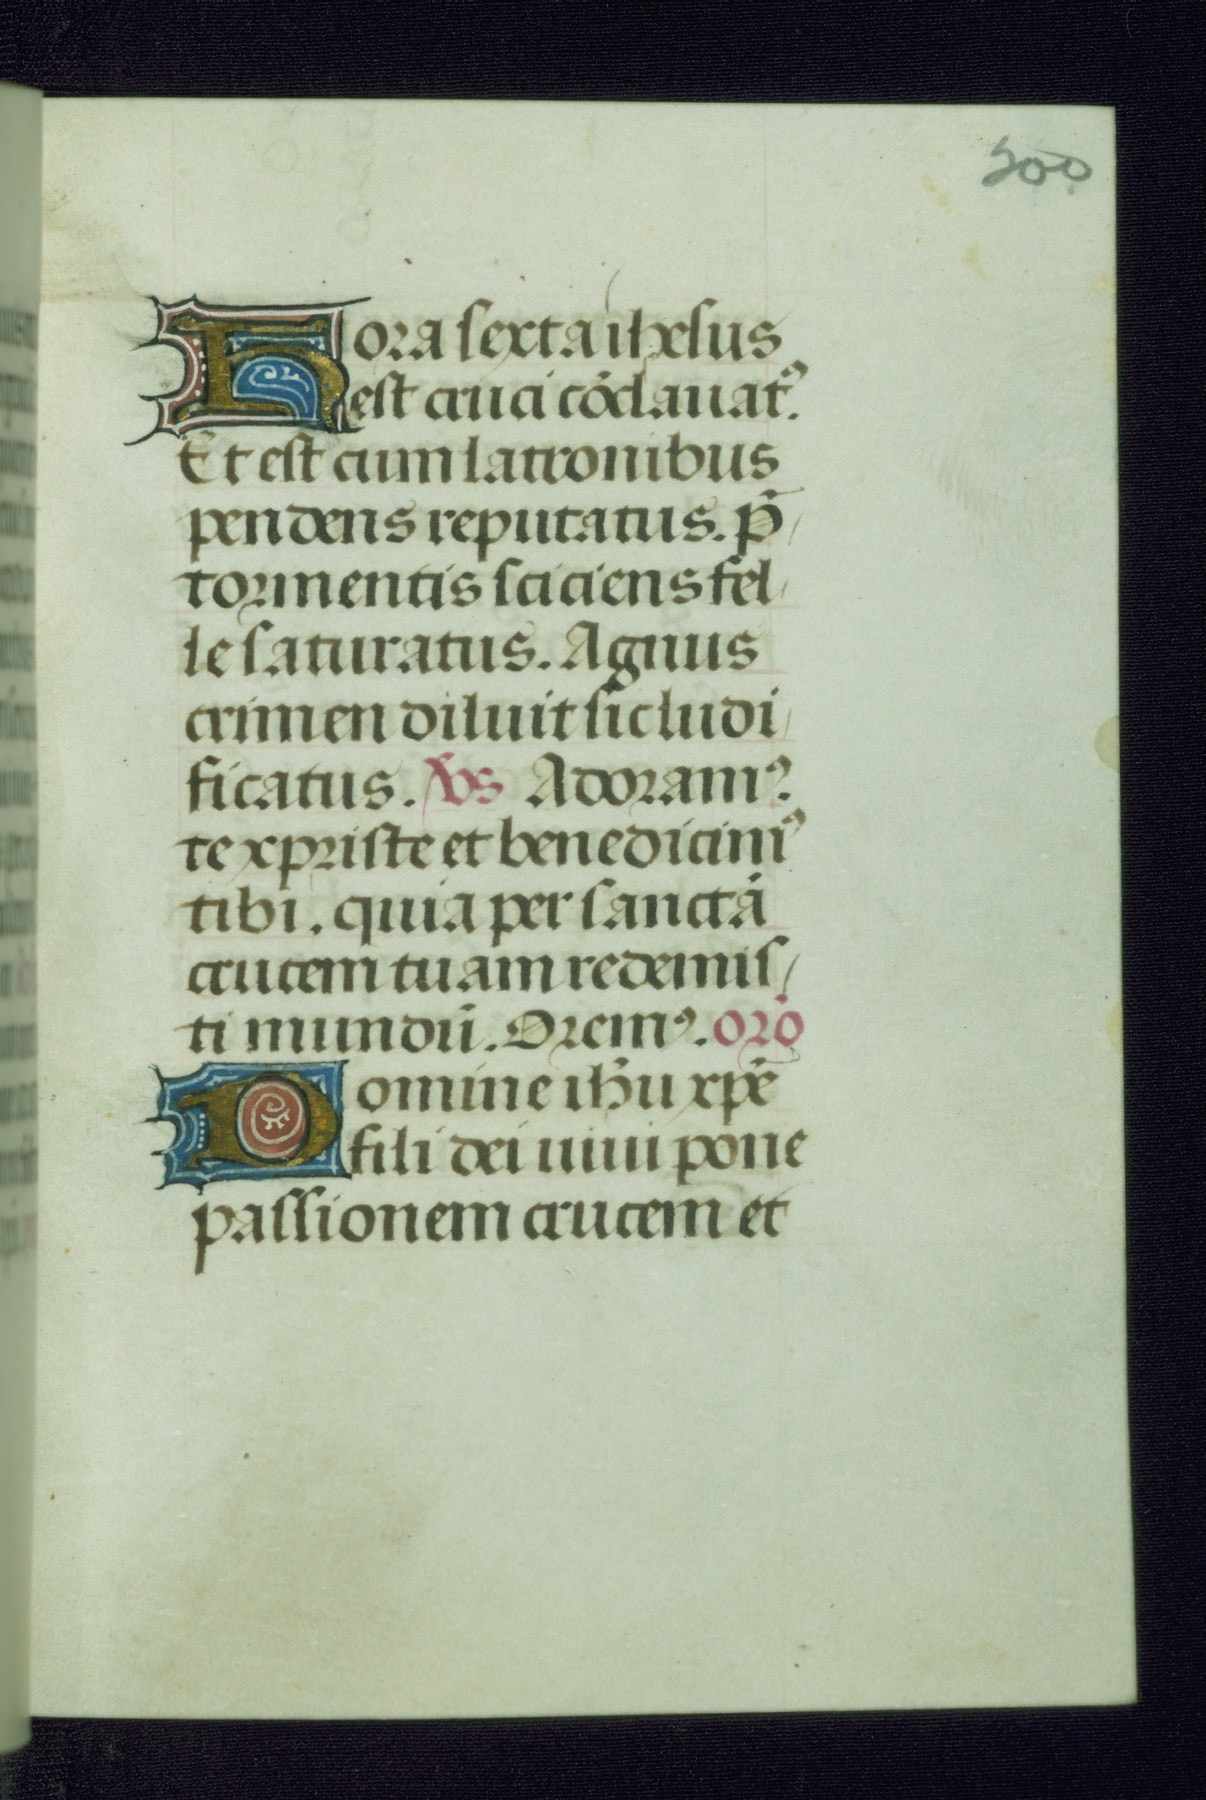 200
Hora sexta ihesus
est cruci cōclauatꝰ.
Et est cum latronibus
pendens reputatus. p̄
tormentis sciciens fel
le saturatus. Agnus
crimen diluit sic ludi
ficatus. Vs Adoramꝰ
te xpriste et benedicimꝰ
tibi. quia per sanctā
crucem tuam redemis
ti mundū. Oremꝰ. oro
Domine ihu xpē
fili dei uiui pone
passionem crucem et